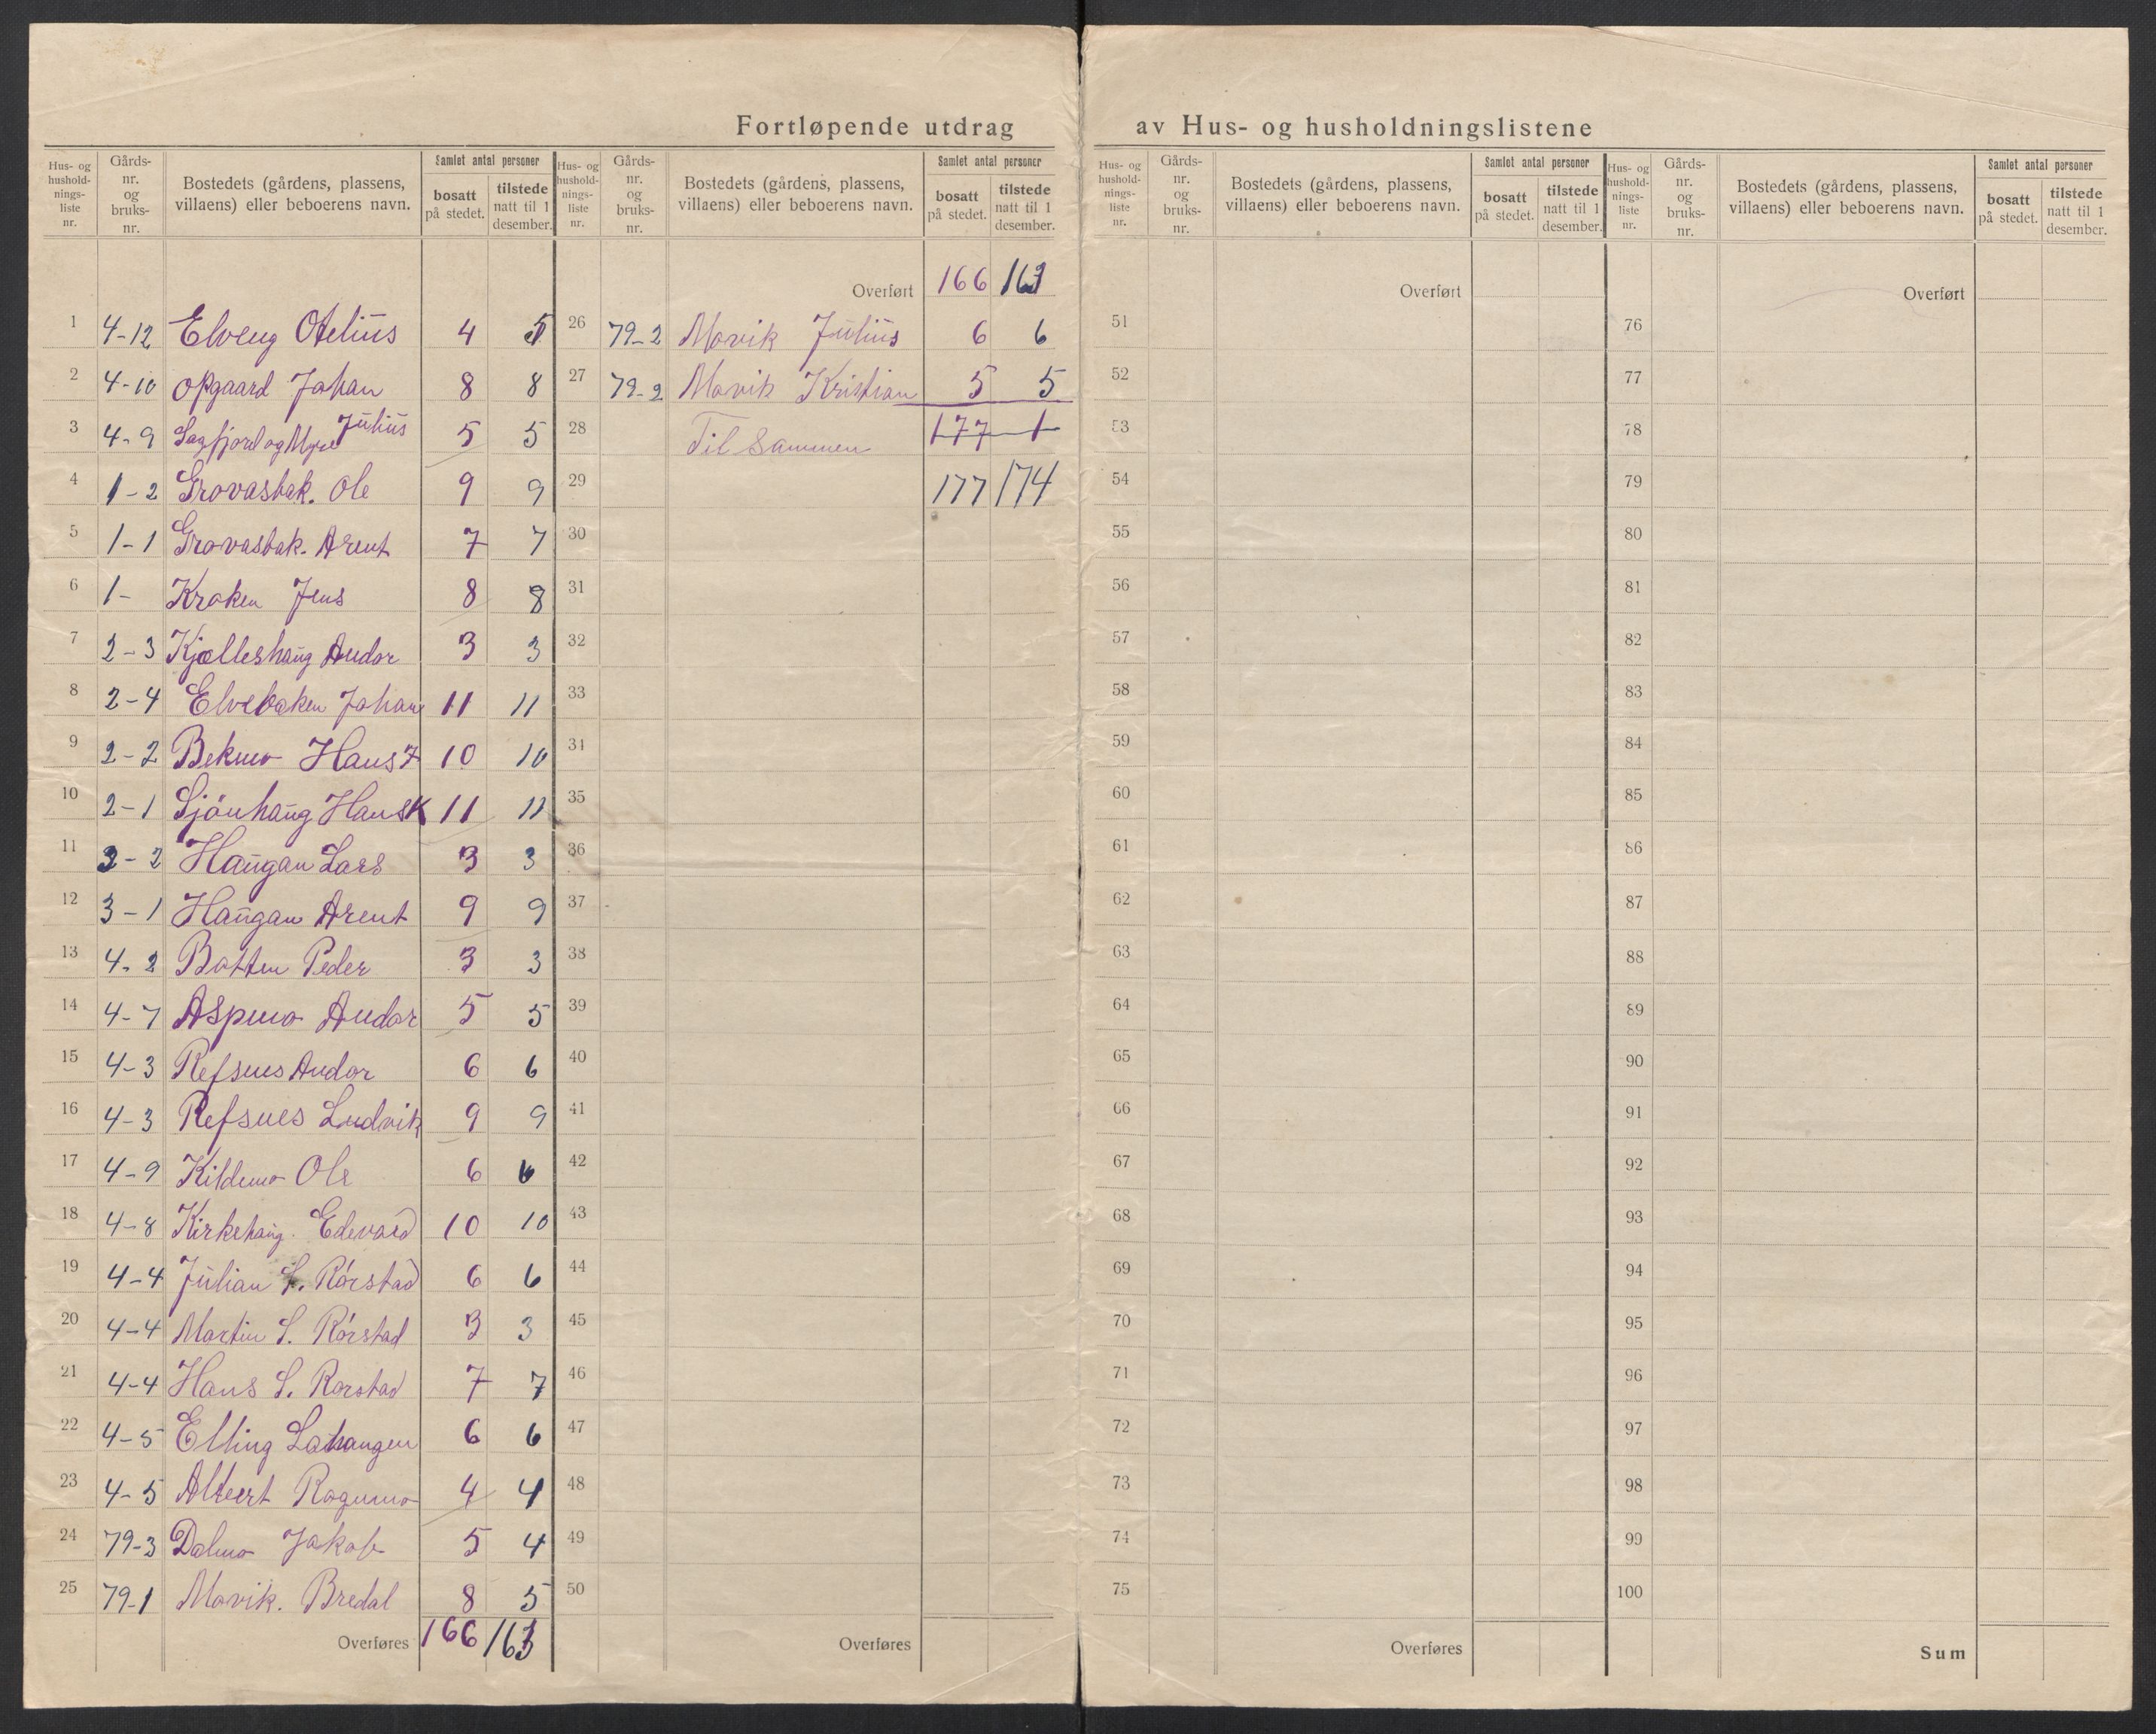 Fortløpende utdrag av Hus- og husholdningslistene
Hus- og husholdnings- liste nr. | Gårds- nr. og bruks- nr. | Bostedets (gårdens, plassens, villaens) eller beboerens navn. | Samlet antal personer | bosatt på stedet. | tilstede natt til 1 desember.
1 4-12 Elveng Otelius 4 5
2 4-10 Opgaard Johan 8 8
3 4-9 Sagfjord og Myre Julius 5 5
4 1-2 Grovasbak. Ole 9 9
5 1-1 Grovasbak. Arent 7 7
6 1- Kraken Jens 8 8
7 2-3 Kjelleshaug Andor 3 3
8 2-4 Elvebaken Johan 11 11
9 2-2 Bekmo Hans J 10 10
10 2-1 Sjönhaug Hans K 11 11
11 3-2 Haugan Lars 3 3
12 3-1 Haugan Arent 9 9
13 4-2 Botten Peder 3 3
14 4-7 Aspmo Andor 5 5
15 4-3 Refsnes Andor 6 6
16 4-3 Refsnes Ludvik 9 9
17 4-9 Kildemo Ole 6 6
18 4-8 Kirkehaug. Edevard 10 10
19 4-4 Julian S. Rörstad 6 6
20 4-4 Martin S. Rörstad 3 3
21 4-4 Hans S. Rorstad 7 7
22 4-5 Elling Lahaugen 6 6
23 4-5 Albert Rognmo 4 4
24 79-3 Dalmo Jakob 5 4
25 79-1 Movik. Bredal 8 5
Overføres 166 163
Hus- og husholdnings- liste nr. | Gårds- nr. og bruks- nr. | Bostedets (gårdens, plassens, villaens) eller beboerens navn. | Samlet antal personer | bosatt på stedet. | tilstede natt til 1 desember.
Overført 166 163
26 79-2 Movik Julius 6 6
27 79-2 Movik Kristian 5 5
28 Til Sammen 177 1
29 177 174
30
31
32
33
34
35
36
37
38
39
40
41
42
43
44
45
46
47
48
49
50
Overføres
Hus- og hushold- nings- liste nr. | Gårds- nr. og bruks- nr. | Bostedets (gårdens, plassens, villaens) eller beboerens navn. | Samlet antal personer | bosatt på stedet. | tilstede natt til 1 desember.
Overført
51
52
53
54
55
56
57
58
59
60
61
62
63
64
65
66
67
68
69
70
71
72
73
74
75
Overføres
Hus- og hushold- nings- liste nr. | Gårds- nr. og bruks- nr. | Bostedets (gårdens, plassens, villaens) eller beboerens navn. | Samlet antal personer | bosatt på stedet. | tilstede natt til 1 desember.
Overført
76
77
78
79
80
81
82
83
84
85
86
87
88
89
90
91
92
93
94
95
96
97
98
99
100
Sum